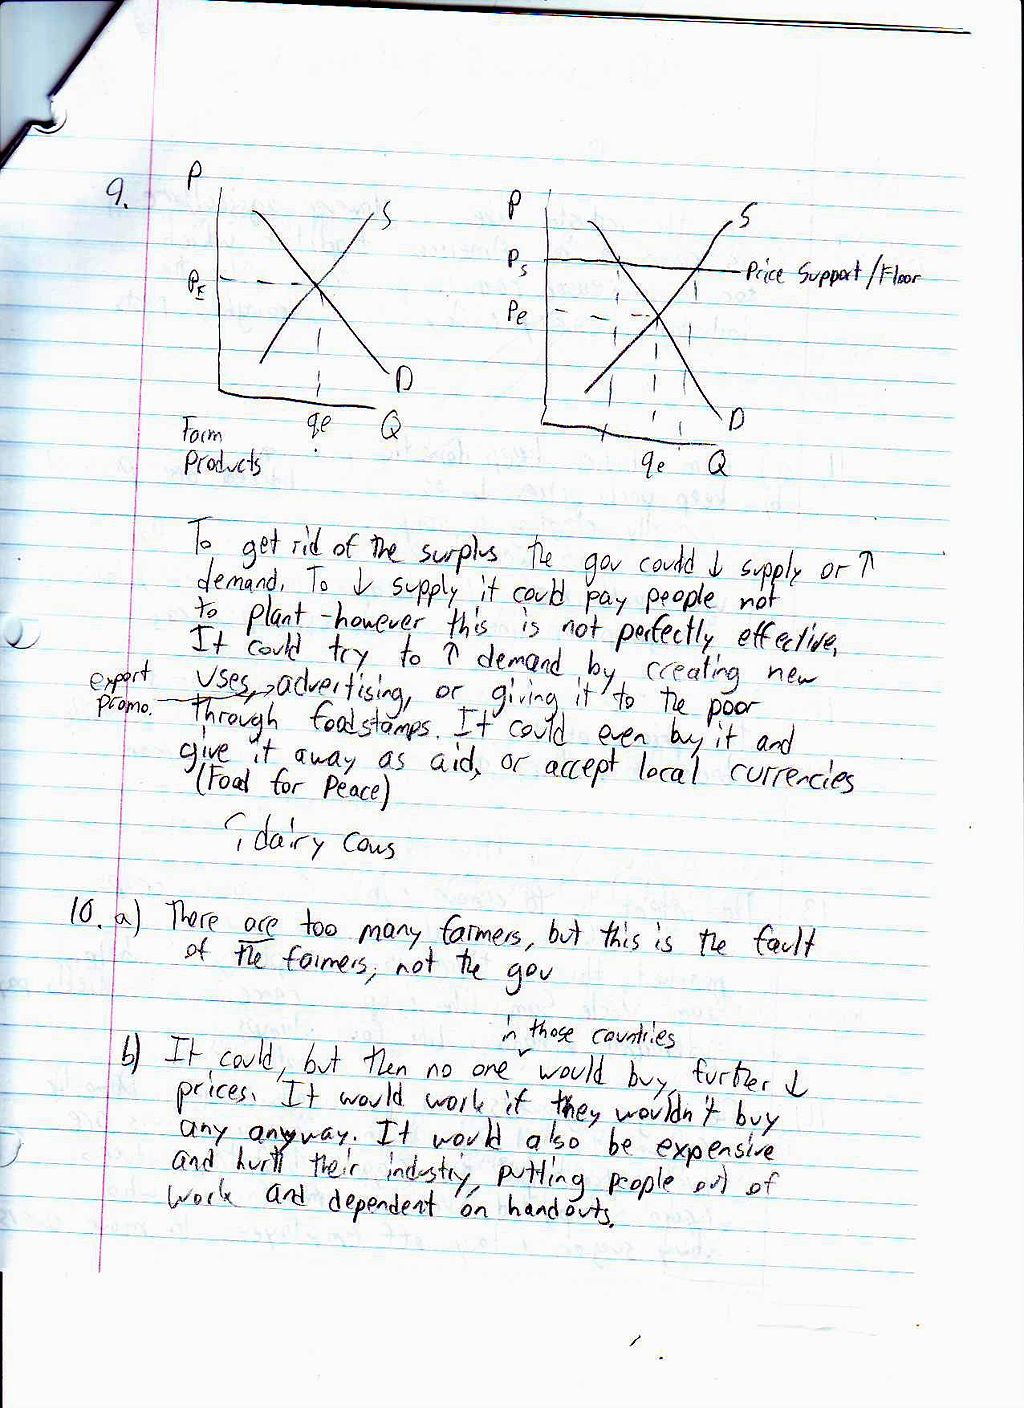 9.
P
S
PE
D
qe
Q
Farm
Products
P
S
Ps
Price Support/Floor
Pe
D
qe
Q
To get rid of the surplus the gov could ↓ supply or ↑
demand. To ↓ supply it could pay people not
to plant - however this is not perfectly effective.
It could try to ↑ demand by creating new
export
promo.
uses, advertising, or giving it to the poor
through foodstamps. It could even buy it and
give it away as aid, or accept local currencies
(Food for Peace)
dairy cows
10. a) There are too many farmers, but this is the fault
of the farmers, not the gov
in those countries
b) It could, but then no one would buy, further ↓
prices. It would work if they wouldn't buy
any anyway. It would also be expensive
and hurt their industry, putting people out of
work and dependent on handouts.